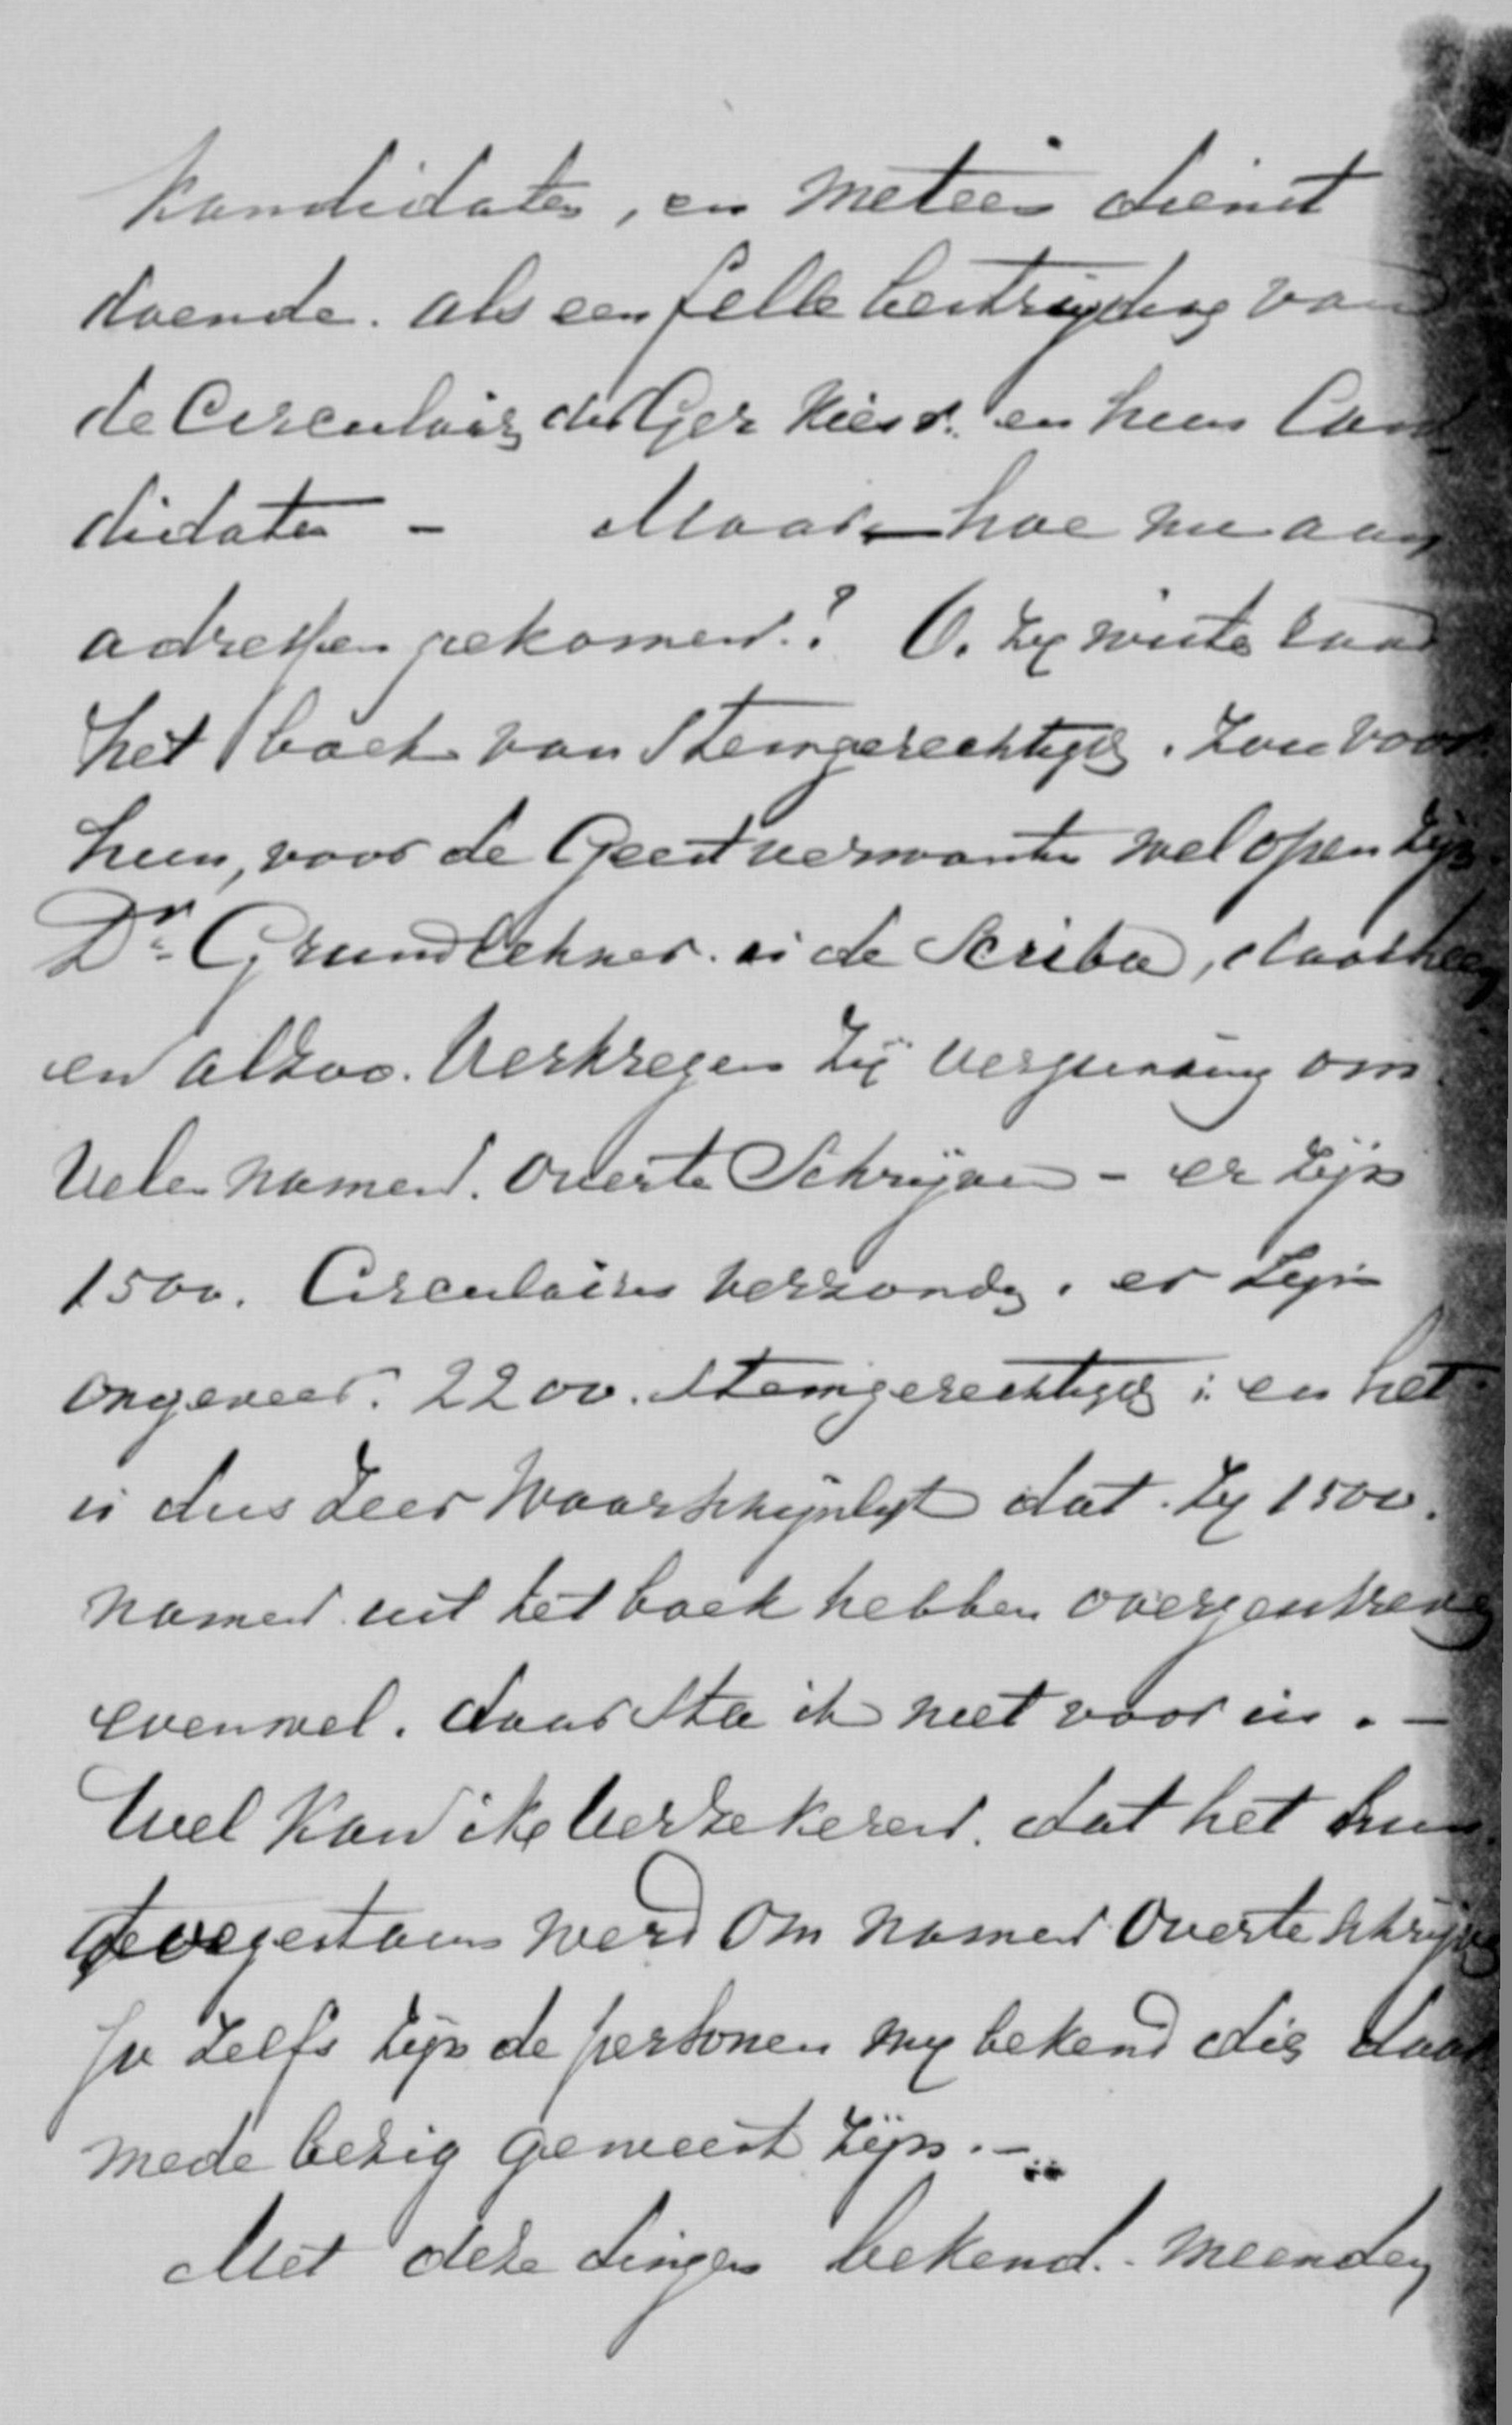 Kandidaten, en meteen dienst
doende. als een felle bestrijding van
de Circulaire der Ger Kiesv. en hun Can
didaten - Maar hoe nu aan
adressen gekomen.? O. zij wisten raad
het boek van Stemgerechtigden. zou voor
hun, voor de Geestverwanten wel open zijn.
Dr. Grundlehner. is de Scriba, daarheen
en alzoo. Verkregen zij vergunning om.
Vele namen. over te Schrijven - er zijn
1500. Circulaires verzonden. er zijn
ongeveer. 2200. Stemgerechtigden; en het
is dus zeer Waarschijnlijk dat. zij 1500.
namen uit het boek hebben overgeschreven
evenwel. daar sta ik niet voor in. -
Wel kan ik Verzekeren. dat het hun
toegestaan werd om namen over te schrijven
Ja zelfs zijn de personen mij bekend die daar
mede bezig geweest zijn. -
Met deze dingen bekend. meenden